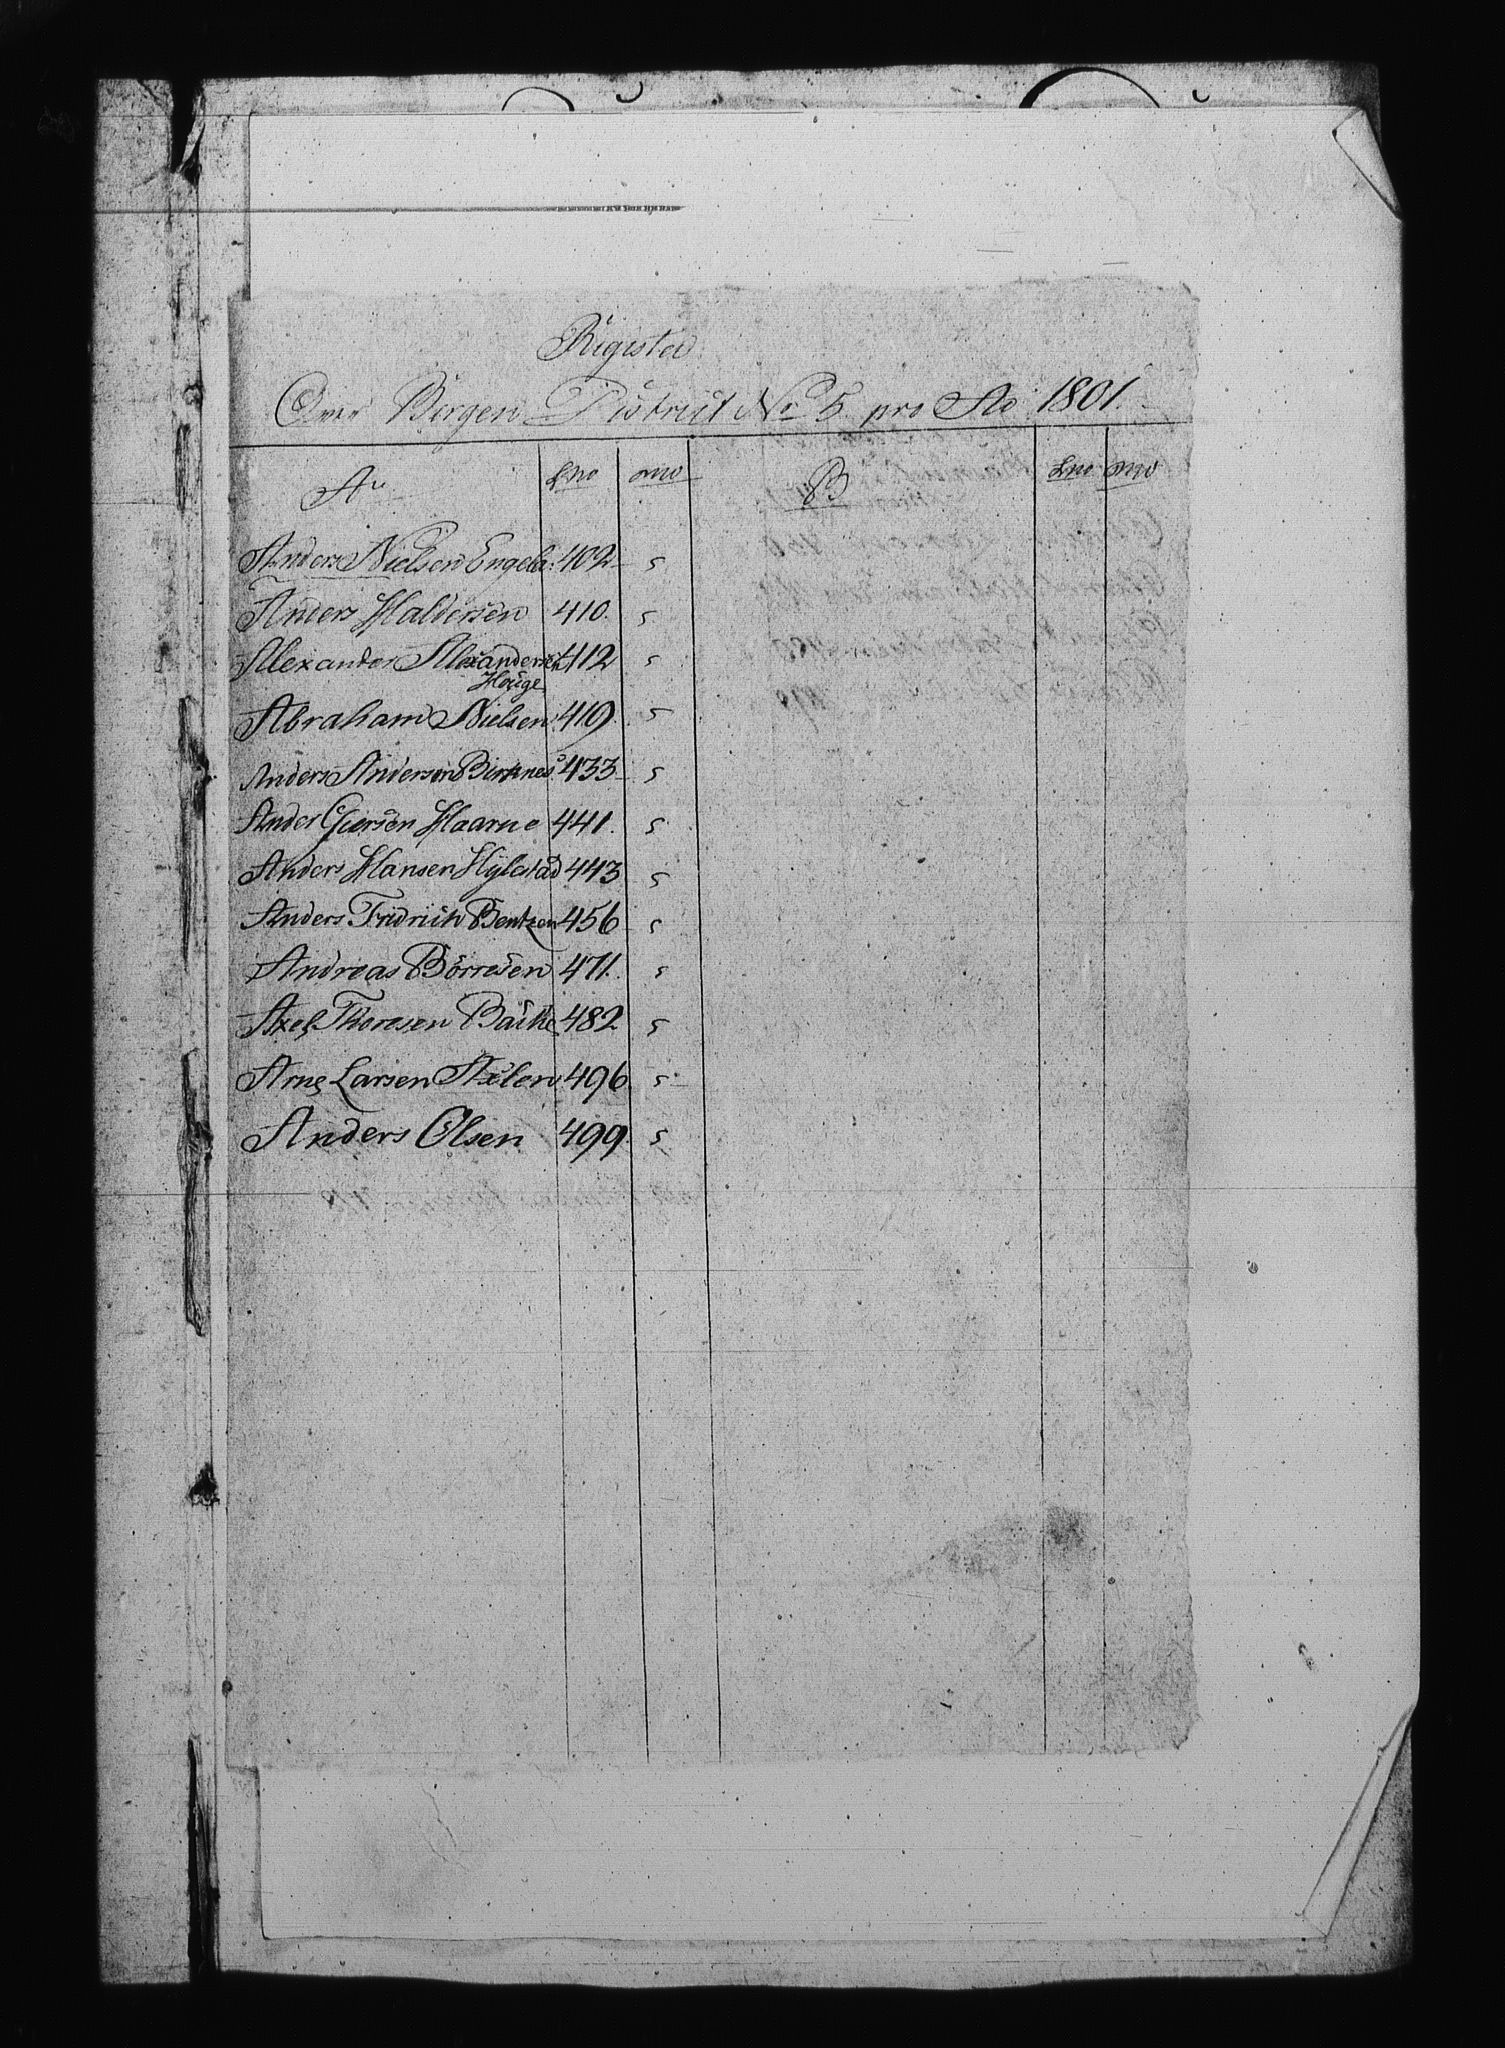 Register
Over Bergens District No 5 pro Ao 1801.
A. Lno ono B Lno ono
Anders Nielsen Engela: 402 5
Anders Haldersen 410. 5
Alexander Alexandersen 412 5
Houge
Abraham Nielsen 419. 5
Anders Andersen Birknes 433 5
Ander Giersen Haarne 441. 5
Anders Hansen Hylestad 443 5
Anders Fridrich Bentzen 456 5
Andreas Börresen 471. 5
Axel Thoresen Bakke 482 5
Arne Larsen Axlen 496 5
Anders Olsen 499. 5